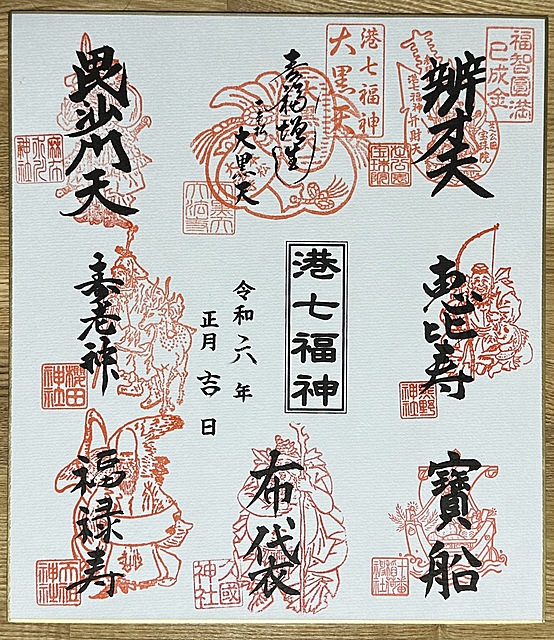 福智圓満
巳成金
辨才天
港七福神弁財天
港七福神
大黒天
大黒天
毘沙門天
恵比寿
熊野
神社
港七福神
令和六年
正月吉日
寿老神
櫻田
神社
寳船
十番
稲荷
神社
布袋
久國
神社
福禄寿
天祖
神社